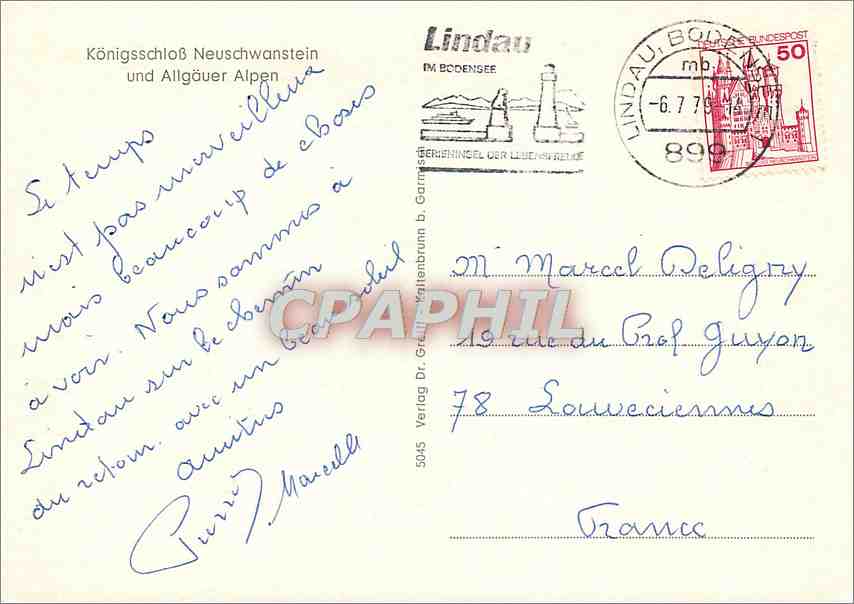 Königsschloß Neuschwanstein
und Allgäuer Alpen
Le temps
n'est pas merveilleux
mais beaucoup de choses
à voir. Nous sommes à
Lindau sur le chemin
du retour avec un beau soleil
amitiés
Marcelle
5045 Verlag Dr. Kaltenbrunn b. Garmisch
Lindau
IM BODENSEE
FERIENINSEL DER LEBENSFREUDE
LINDAU, BODENSEE
mb
-6.7.79
899
DEUTSCHE BUNDESPOST
50
SCHLOSS NEUSCHWANSTEIN
CPAPHIL
Mr Marcel Deligny
19 rue du Prof Guyon
78 Louveciennes
France